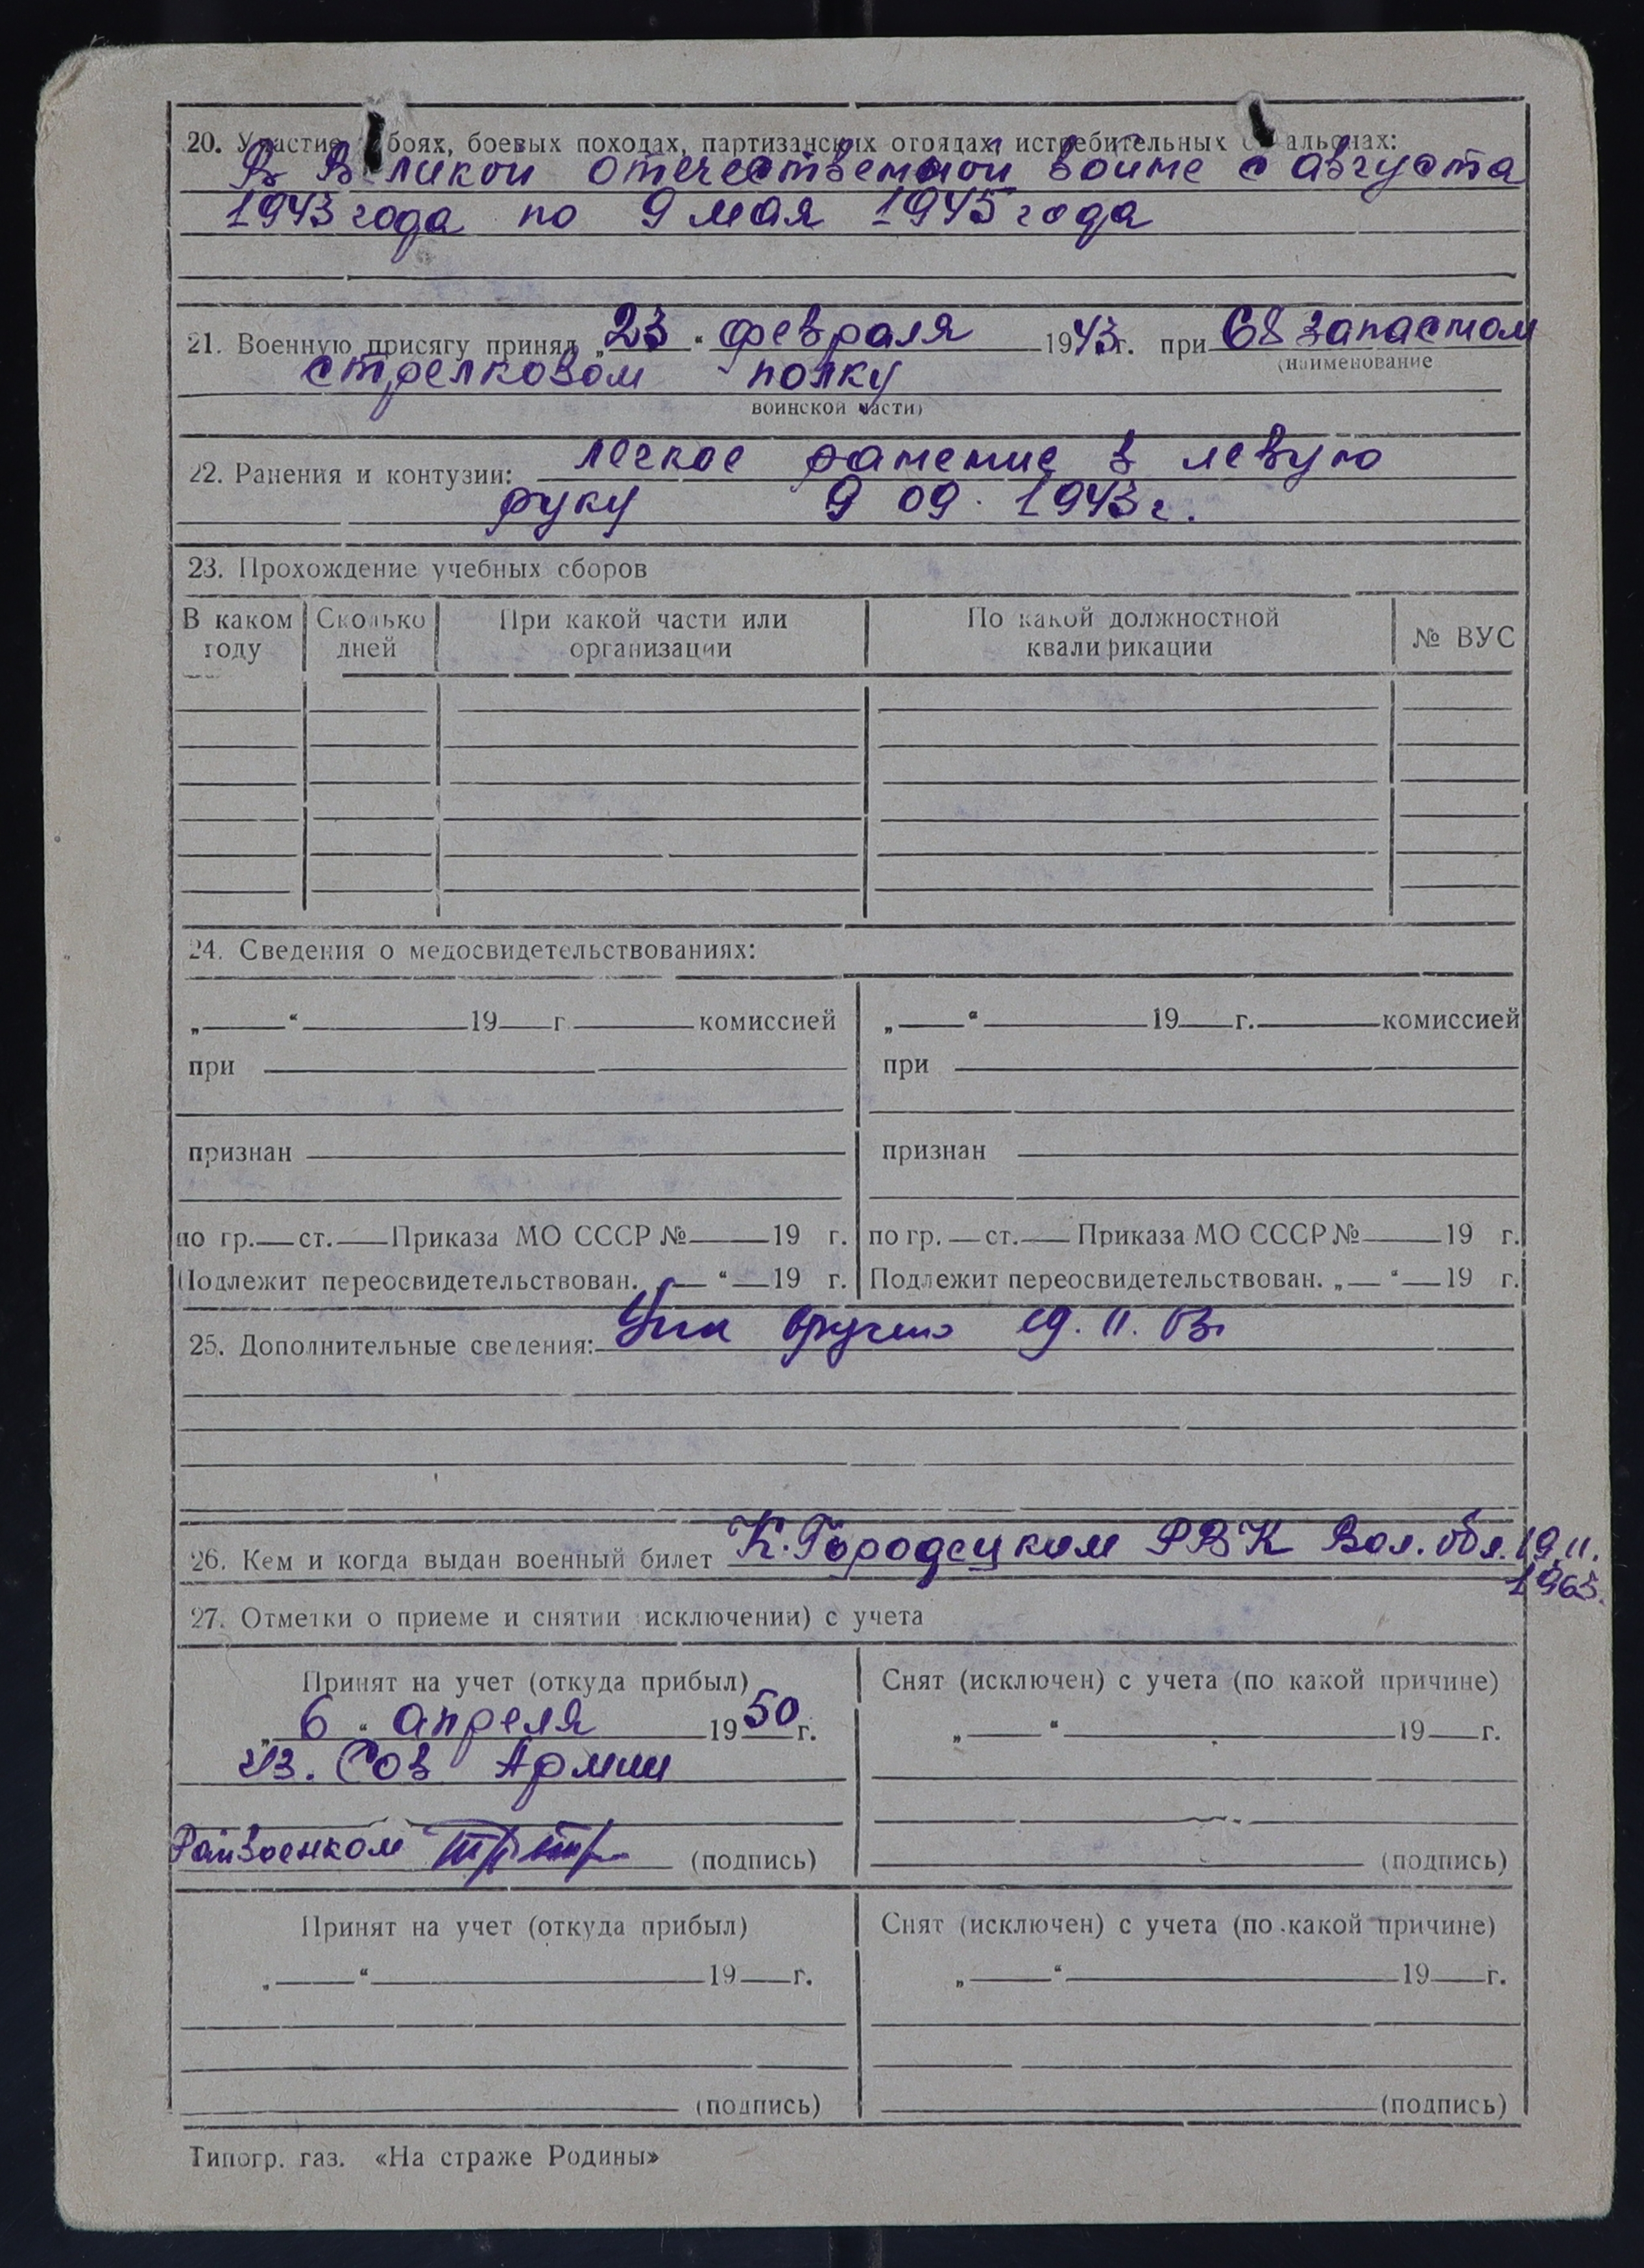 20. Участие боях, боевых походах, партизанских отрядах, истребительных альонах:
В Великой отечественной войне с августа
1943 года по 9 мая 1945 года
21. Военную присягу принял „23“ февраля 1943 г. при 68 запасном
(наименование
стрелковом полку
воинской части)
22. Ранения и контузии: легкое ранение в левую
руку 9 09. 1943 г.
23. Прохождение учебных сборов
В каком году Сколько дней При какой части или организации По какой должностной квалификации № ВУС
24. Сведения о медосвидетельствованиях:
„ “ 19 г комиссией „ “ 19 г. комиссией
при при
признан признан
по гр. ст. Приказа МО СССР № 19 г. по гр. ст. Приказа МО СССР № 19 г.
Подлежит переосвидетельствован. „ “ 19 г. Подлежит переосвидетельствован. „ “ 19 г.
25. Дополнительные сведения: вручено 19. 11. 63г
26. Кем и когда выдан военный билет К.Городецким РВК Вол. обл. 19.11.
1963.
27. Отметки о приеме и снятии исключении) с учета
Принят на учет (откуда прибыл) Снят (исключен) с учета (по какой причине)
„6“ апреля 1950 г. „ “ 19 г.
из. Сов Армии
Райвоенком (подпись) (подпись)
Принят на учет (откуда прибыл) Снят (исключен) с учета (по какой причине)
„ “ 19 г. „ “ 19 г.
(подпись) (подпись)
Типогр. газ. «На страже Родины»